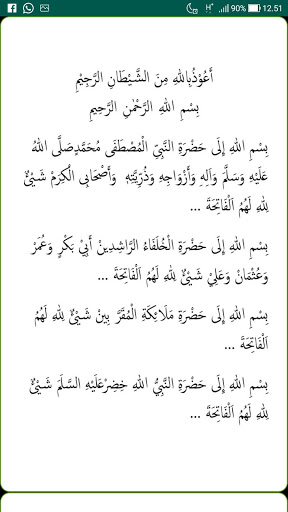 90% 12.51
أَعُوْذُبِاللهِ مِنَ الشَّيْطَانِ الرَّجِيْمِ
بِسْمِ اللهِ الرَّحْمٰنِ الرَّحِيْمِ
بِسْمِ اللهِ إِلَى حَضْرَةِ النَّبِيِّ الْمُصْطَفَى مُحَمَّدٍصَلَّى اللهُ
عَلَيْهِ وَسَلَّمَ وَآلِهِ وَأَزْوَاجِهِ وَذُرِّيَّتِهِ وَأَصْحَابِى الْكِرْمْ شَيْئٌ
لِلهِ لَهُمُ اَلْفَاتِحَةَ ...
بِسْمِ اللهِ إِلَى حَضْرَةِ الْخُلَفَاءُ الرَّاشِدِيْنَ أَبِيْ بَكْرٍ وَعُمَرْ
وَعُثْمَانْ وَعَلِيْ شَيْئٌ لِلهِ لَهُمْ اَلْفَاتِحَةَ ...
بِسْمِ اللهِ إِلَى حَضْرَةِ مَلَائِكَةِ الْمُقَرَّ بِيْنَ شَيْئٌ لِلهِ لَهُمُ
اَلْفَاتِحَةَ ...
بِسْمِ اللهِ إِلَى حَضْرَةِ النَّبِيُّ اللهِ خِضِرْعَلَيْهِ السَّلَمَ شَيْئٌ
لِلهِ لَهُمُ اَلْفَاتِحَةَ ...